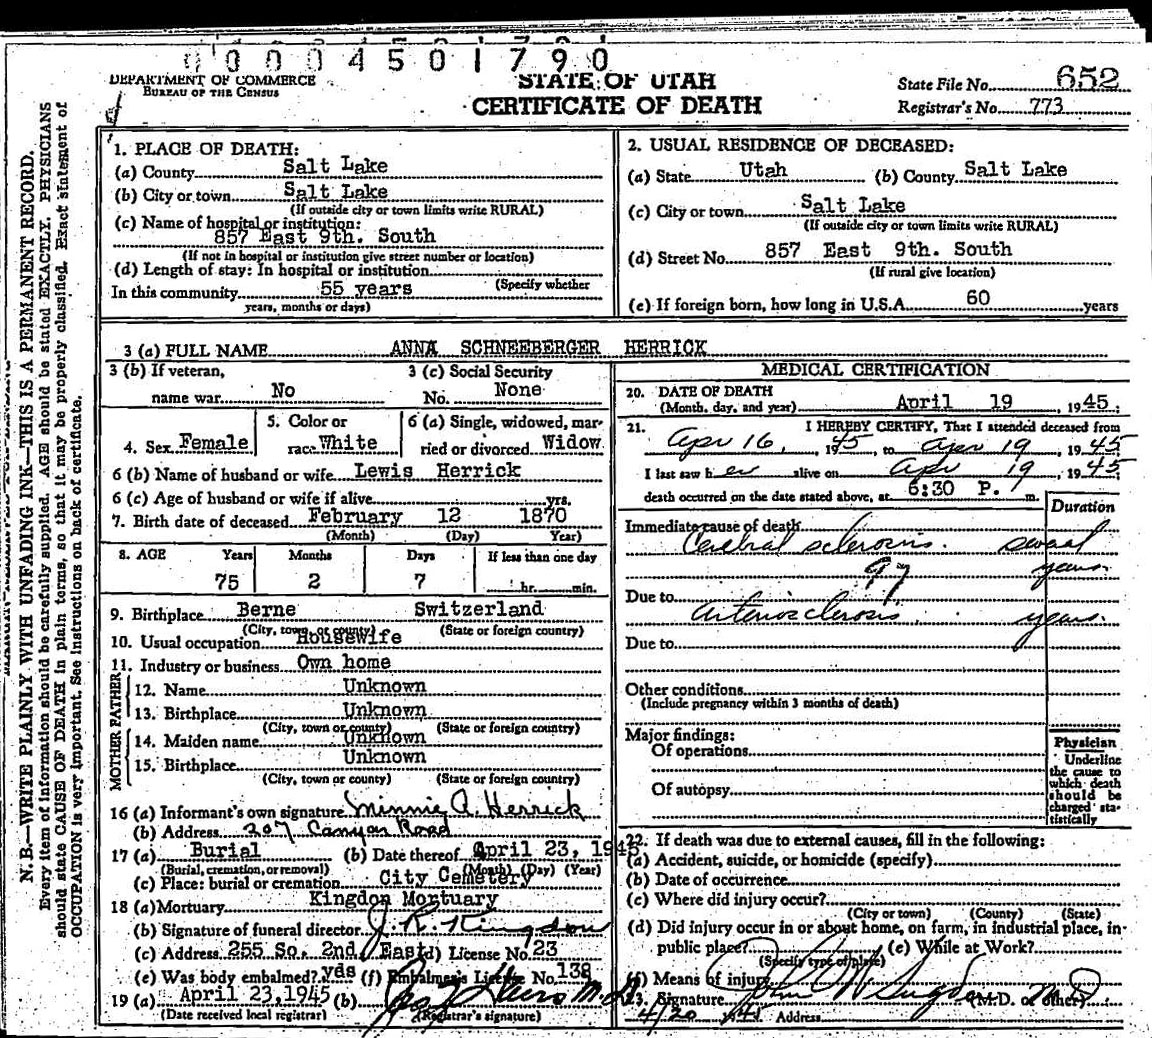 0 0 0 4 5 0 1 7 9 0
DEPARTMENT OF COMMERCE
BUREAU OF THE CENSUS
STATE OF UTAH
CERTIFICATE OF DEATH
State File No. 652
Registrar's No. 773
N. B.—WRITE PLAINLY WITH UNFADING INK—THIS IS A PERMANENT RECORD.
Every item of information should be carefully supplied. AGE should be stated EXACTLY. PHYSICIANS
should state CAUSE OF DEATH in plain terms, so that it may be properly classified. Exact statement of
OCCUPATION is very important. See instructions on back of certificate.
1. PLACE OF DEATH:
(a) County Salt Lake
(b) City or town Salt Lake
(If outside city or town limits write RURAL)
(c) Name of hospital or institution:
857 East 9th. South
(If not in hospital or institution give street number or location)
(d) Length of stay: In hospital or institution
(Specify whether
In this community 55 years
years, months or days)
2. USUAL RESIDENCE OF DECEASED:
(a) State Utah (b) County Salt Lake
(c) City or town Salt Lake
(If outside city or town limits write RURAL)
(d) Street No. 857 East 9th. South
(If rural give location)
(e) If foreign born, how long in U.S.A. 60 years
3 (a) FULL NAME ANNA SCHNEEBERGER HERRICK
3 (b) If veteran, name war No
3 (c) Social Security No. None
4. Sex Female
5. Color or race White
6 (a) Single, widowed, married or divorced Widow
6 (b) Name of husband or wife Lewis Herrick
6 (c) Age of husband or wife if alive yrs.
7. Birth date of deceased February 12 1870
(Month) (Day) Year)
8. AGE Years Months Days If less than one day
75 2 7 hr. min.
9. Birthplace Berne Switzerland
(City, town, or county) (State or foreign country)
10. Usual occupation Housewife
11. Industry or business Own home
FATHER
12. Name Unknown
13. Birthplace Unknown
(City, town or county) (State or foreign country)
MOTHER
14. Maiden name Unknown
15. Birthplace Unknown
(City, town or county) (State or foreign country)
16 (a) Informant's own signature Minnie A. Herrick
(b) Address 207 Canyon Road
17 (a) Burial (b) Date thereof April 23, 1945
(Burial, cremation, or removal) (Month) (Day) (Year)
(c) Place: burial or cremation City Cemetery
18 (a) Mortuary Kingdon Mortuary
(b) Signature of funeral director J. R. Kingdon
(c) Address 255 So. 2nd, East (d) License No. 23
(e) Was body embalmed? yds (f) Embalmer's License No. 138
19 (a) April 23,1945 (b) M. D.
(Date received local registrar) (Registrar's signature)
MEDICAL CERTIFICATION
20. DATE OF DEATH
(Month, day, and year) April 19, 1945
21. I HEREBY CERTIFY, That I attended deceased from
Apr 16, 1945, to Apr 19, 1945
I last saw her alive on Apr 19, 1945
death occurred on the date stated above, at 6:30 P. m.
Duration
Immediate cause of death
Cerebral sclerosis. several
97 years.
Due to
Arteriosclerosis. years.
Due to
Other conditions
(Include pregnancy within 3 months of death)
Major findings:
Of operations
Of autopsy
Physician
Underline
the cause to
which death
should be
charged sta-
tistically
22. If death was due to external causes, fill in the following:
(a) Accident, suicide, or homicide (specify)
(b) Date of occurrence
(c) Where did injury occur?
(City or town) (County) (State)
(d) Did injury occur in or about home, on farm, in industrial place, in-
public place? (e) While at Work?
(Specify type of place)
(f) Means of injury
23. Signature John W. (M.D. or other) M D
4/20 Address